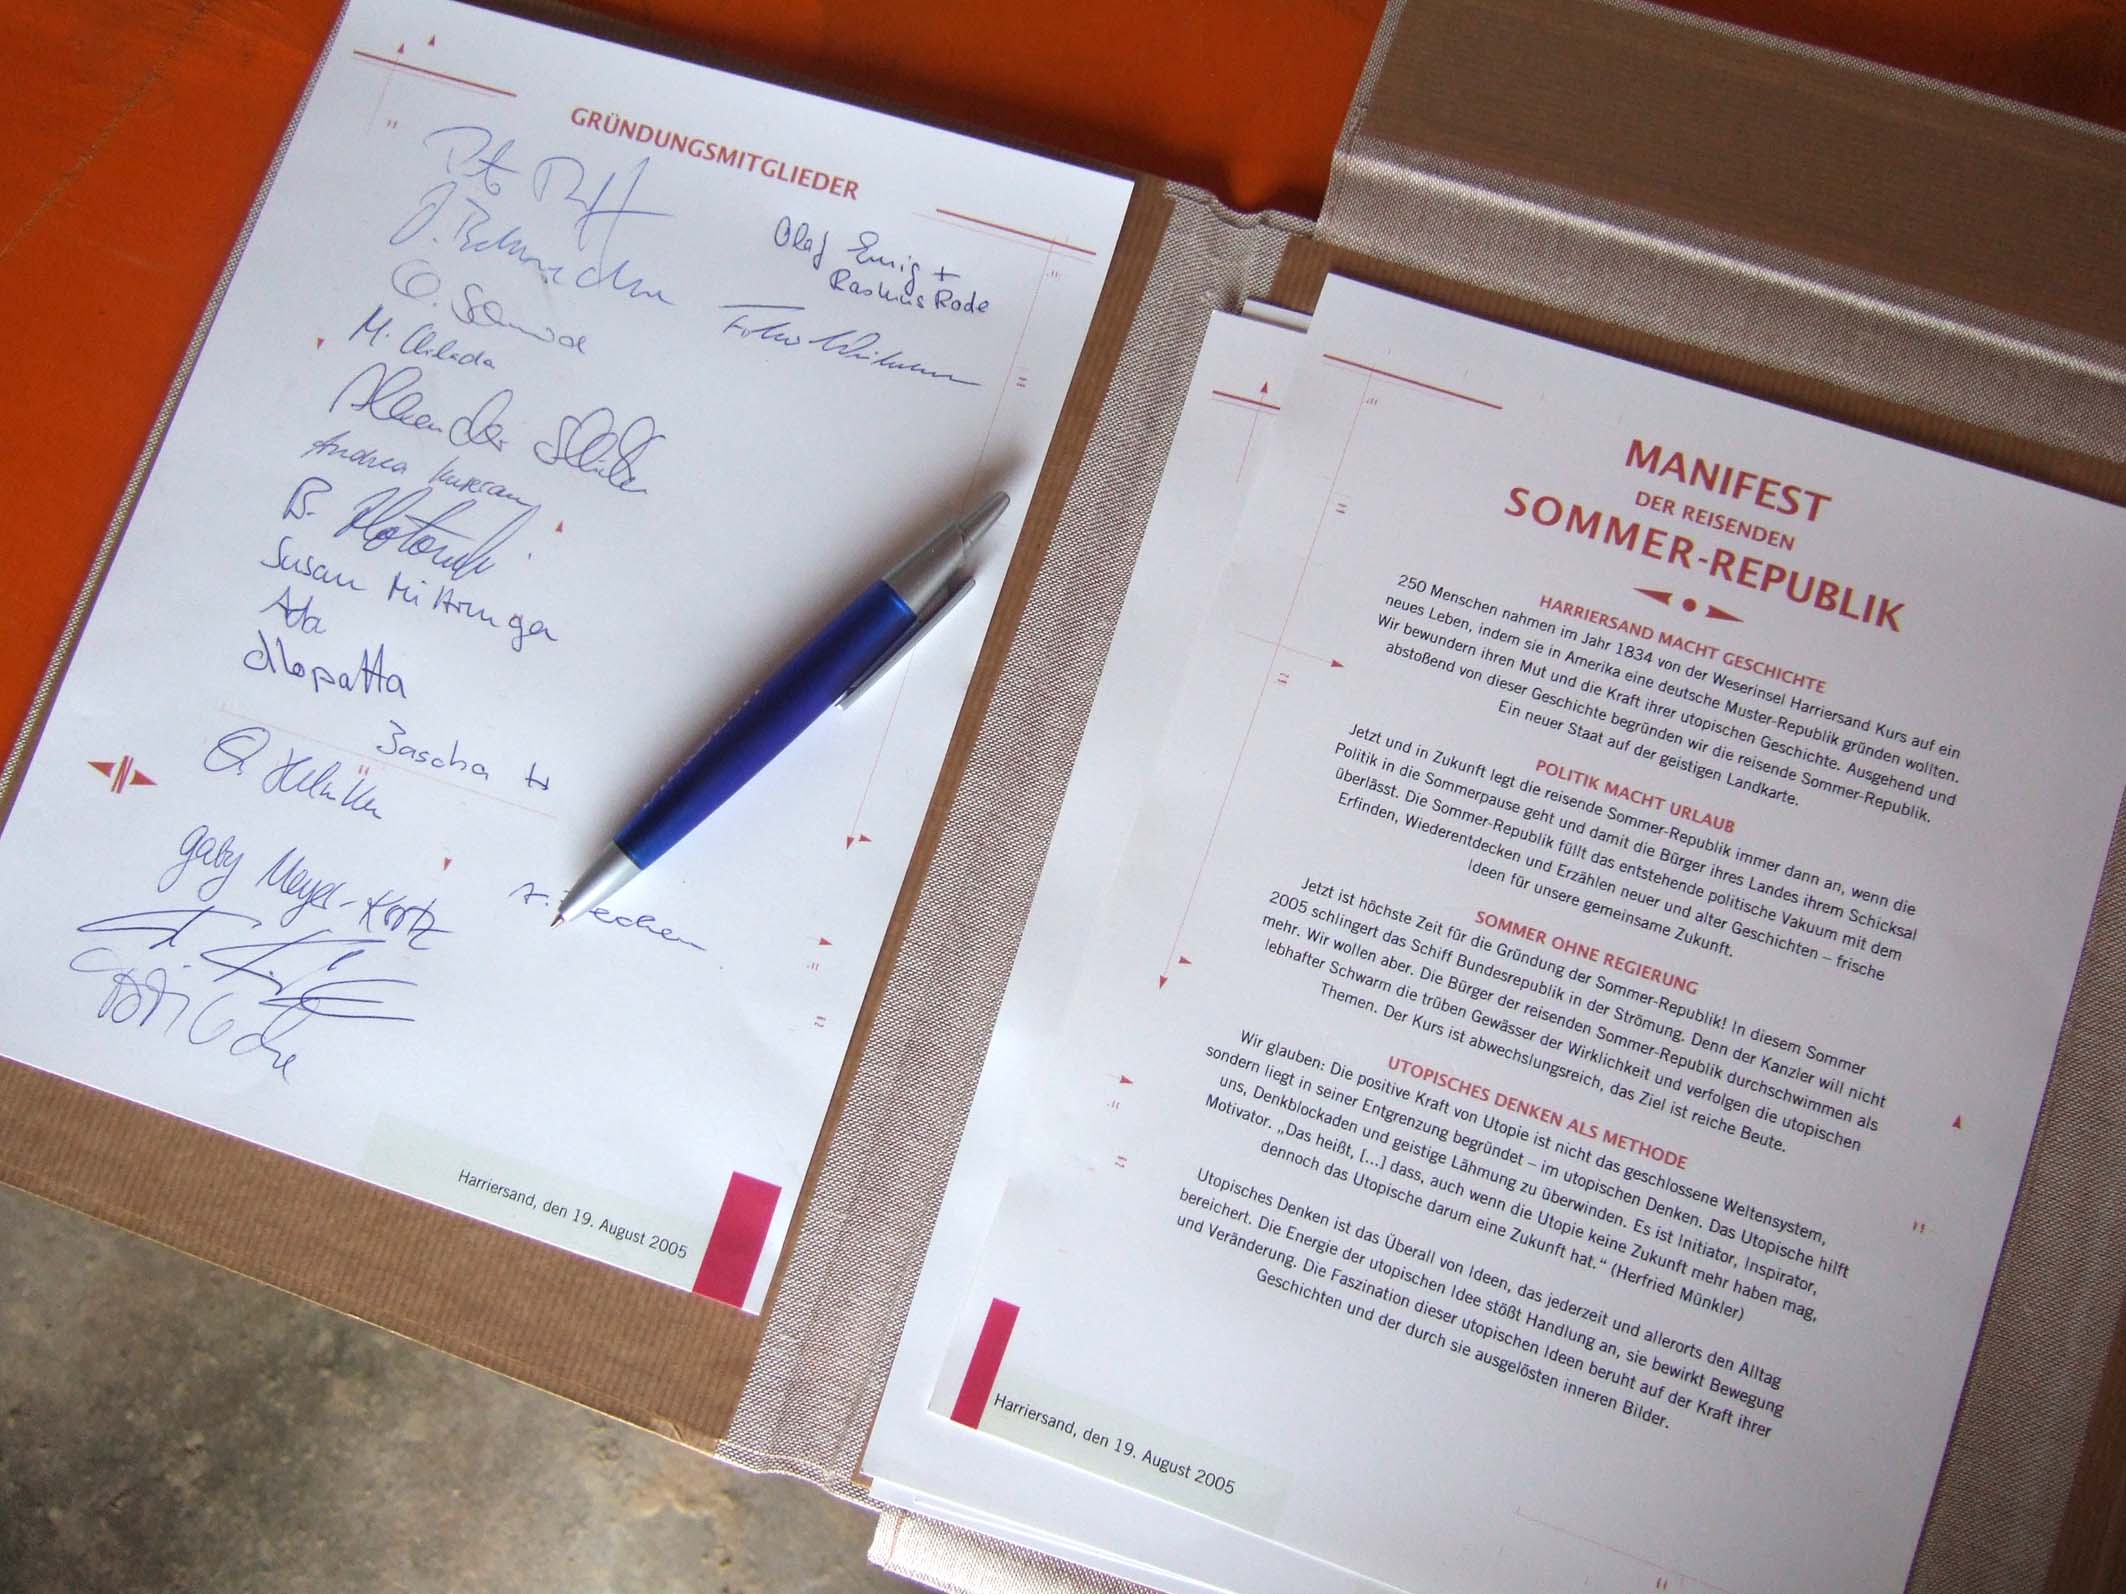 GRÜNDUNGSMITGLIEDER
Olaf Emig +
Rasmus Rode
M.
Andrea
B.
Susan
Ada
Sascha
gaby Meyer-
Harriersand, den 19. August 2005
MANIFEST
DER REISENDEN
SOMMER-REPUBLIK
HARRIERSAND MACHT GESCHICHTE
250 Menschen nahmen im Jahr 1834 von der Weserinsel Harriersand Kurs auf ein
neues Leben, indem sie in Amerika eine deutsche Muster-Republik gründen wollten.
Wir bewundern ihren Mut und die Kraft ihrer utopischen Geschichte. Ausgehend und
abstoßend von dieser Geschichte begründen wir die reisende Sommer-Republik.
Ein neuer Staat auf der geistigen Landkarte.
POLITIK MACHT URLAUB
Jetzt und in Zukunft legt die reisende Sommer-Republik immer dann an, wenn die
Politik in die Sommerpause geht und damit die Bürger ihres Landes ihrem Schicksal
überlässt. Die Sommer-Republik füllt das entstehende politische Vakuum mit dem
Erfinden, Wiederentdecken und Erzählen neuer und alter Geschichten – frische
Ideen für unsere gemeinsame Zukunft.
SOMMER OHNE REGIERUNG
Jetzt ist höchste Zeit für die Gründung der Sommer-Republik! In diesem Sommer
2005 schlingert das Schiff Bundesrepublik in der Strömung. Denn der Kanzler will nicht
mehr. Wir wollen aber. Die Bürger der reisenden Sommer-Republik durchschwimmen als
lebhafter Schwarm die trüben Gewässer der Wirklichkeit und verfolgen die utopischen
Themen. Der Kurs ist abwechslungsreich, das Ziel ist reiche Beute.
UTOPISCHES DENKEN ALS METHODE
Wir glauben: Die positive Kraft von Utopie ist nicht das geschlossene Weltensystem,
sondern liegt in seiner Entgrenzung begründet – im utopischen Denken. Das Utopische hilft
uns, Denkblockaden und geistige Lähmung zu überwinden. Es ist Initiator, Inspirator,
Motivator. „Das heißt, [...] dass, auch wenn die Utopie keine Zukunft mehr haben mag,
dennoch das Utopische darum eine Zukunft hat.“ (Herfried Münkler)
Utopisches Denken ist das Überall von Ideen, das jederzeit und allerorts den Alltag
bereichert. Die Energie der utopischen Idee stößt Handlung an, sie bewirkt Bewegung
und Veränderung. Die Faszination dieser utopischen Ideen beruht auf der Kraft ihrer
Geschichten und der durch sie ausgelösten inneren Bilder.
Harriersand, den 19. August 2005